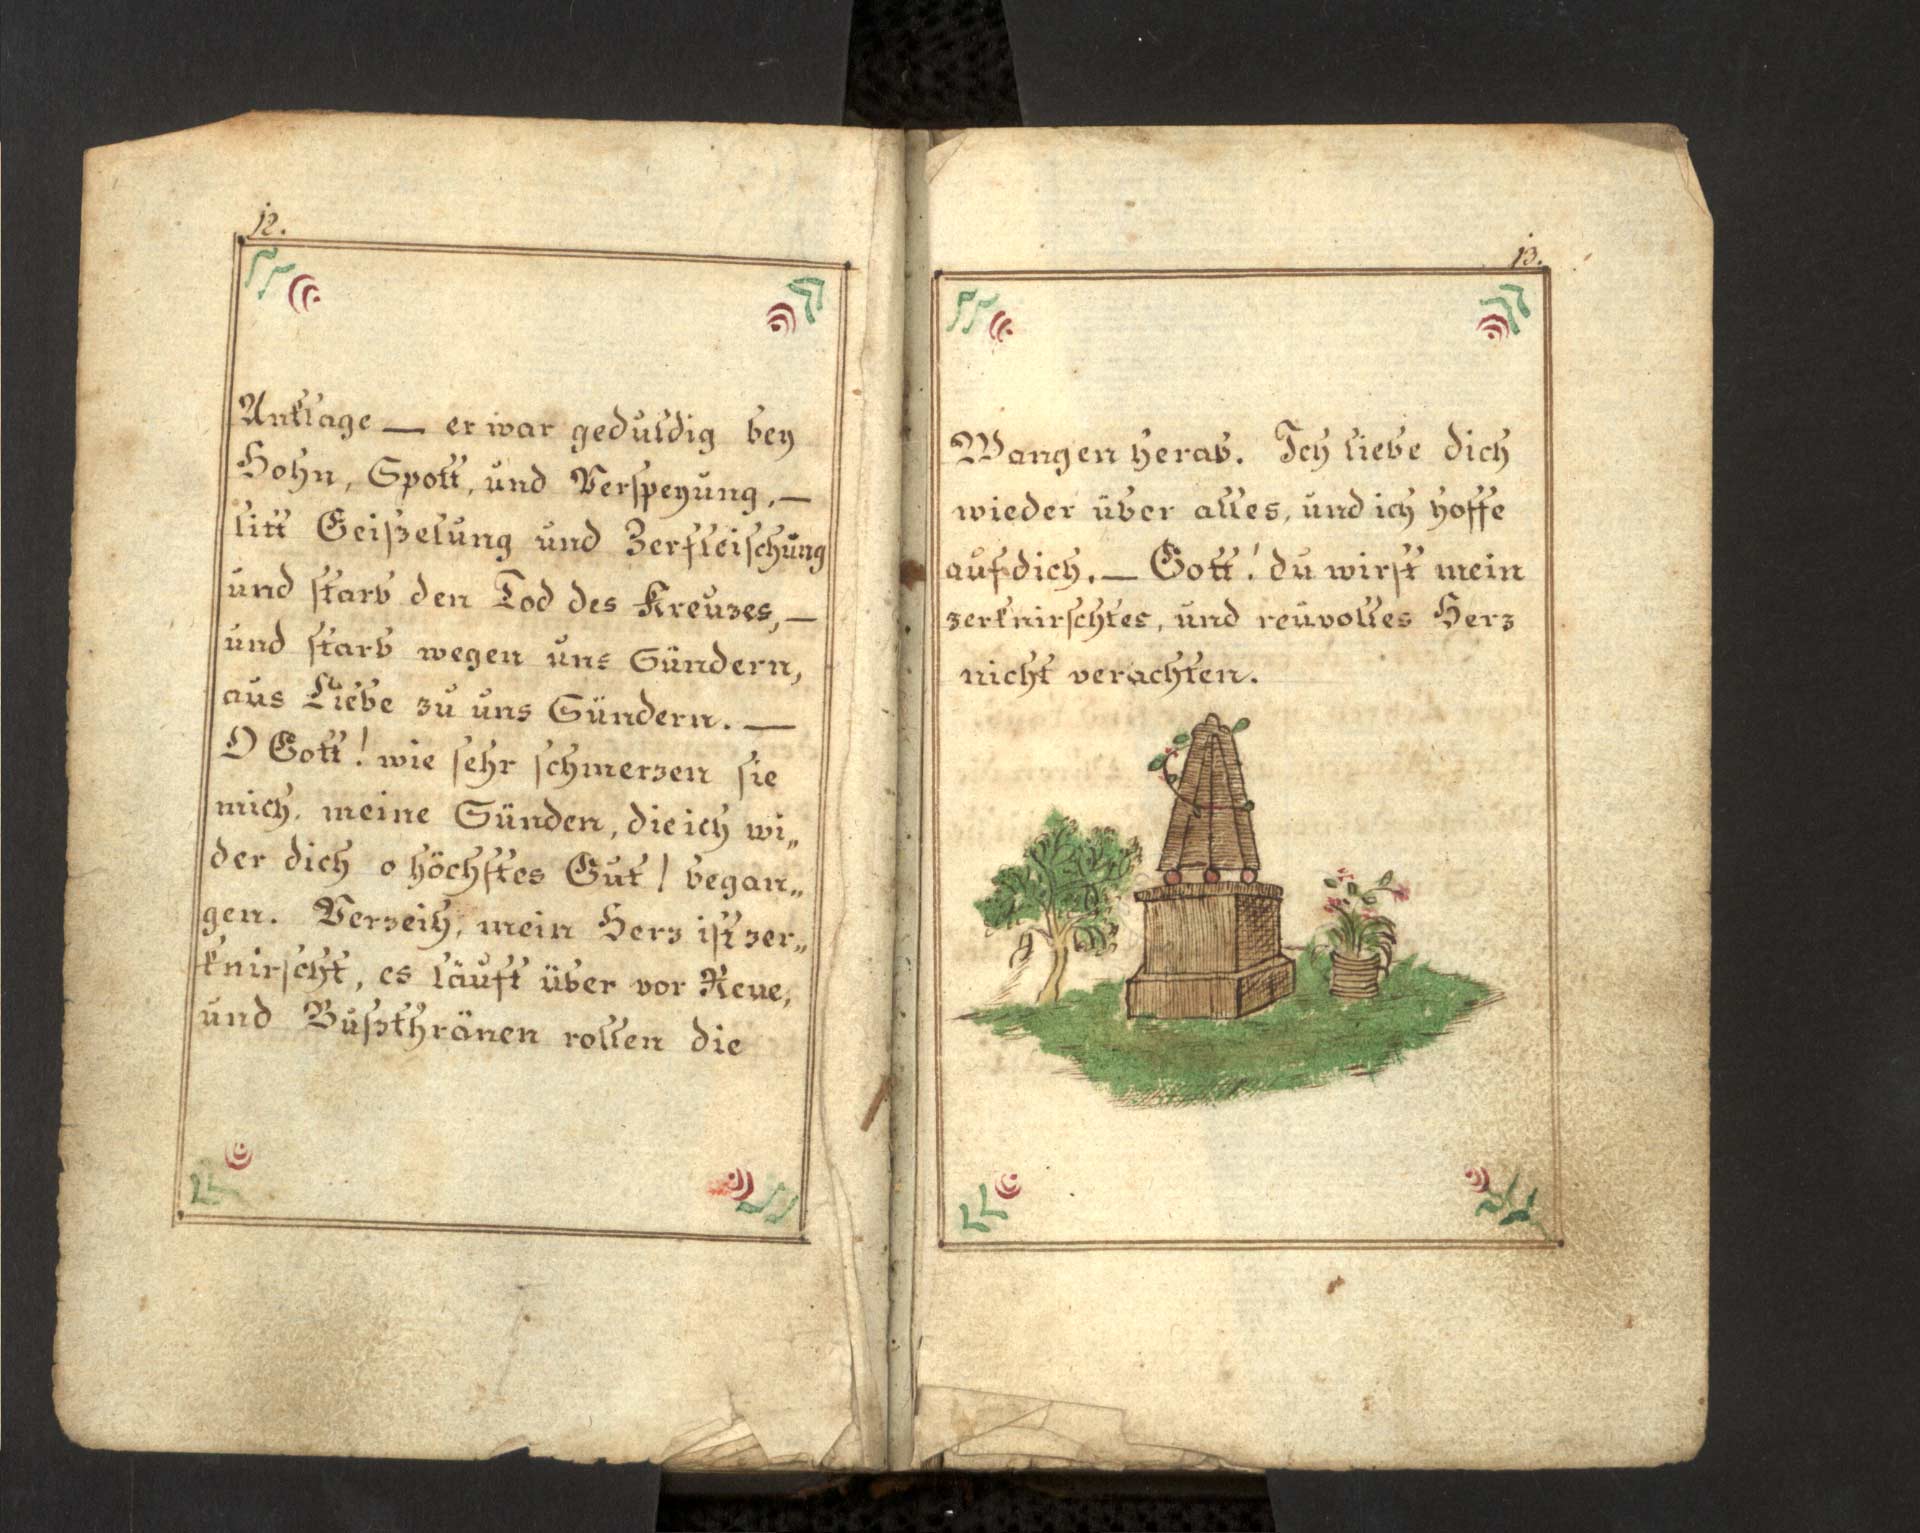 12.
Anklage — er war geduldig bey
Hohn, Spott, und Verspeyung, —
litt Geißelung und Zerfleischung
und starb den Tod des Kreuzes, —
und starb wegen uns Sündern,
aus Liebe zu uns Sündern. —
O Gott! wie sehr schmerzen sie
mich, meine Sünden, die ich wi„
der dich o höchstes Gut! began„
gen. Verzeih, mein Herz ist zer„
knirscht, es läuft über vor Reue,
und Bußthränen rollen die
13.
Wangen herab. Ich liebe dich
wieder über alles, und ich hoffe
auf dich. — Gott! du wirst mein
zerknirschtes, und reuvolles Herz
nicht verachten.